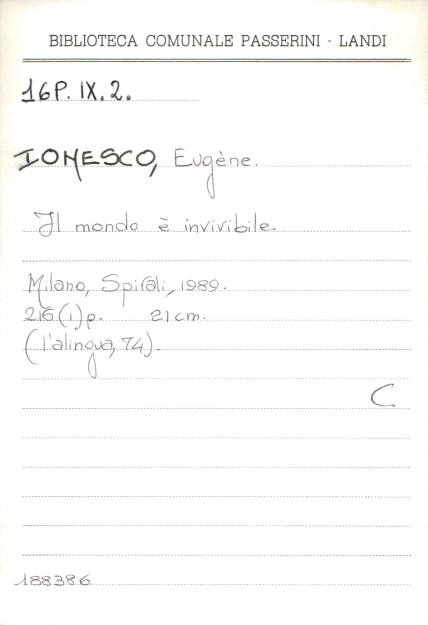 BIBLIOTECA COMUNALE PASSERINI - LANDI
16P. IX. 2.
IONESCO, Eugène.
Il mondo è invivibile
Milano, Spirali, 1989.
216 (1) p. 21 cm.
(l'alingua, 74).
C
188386